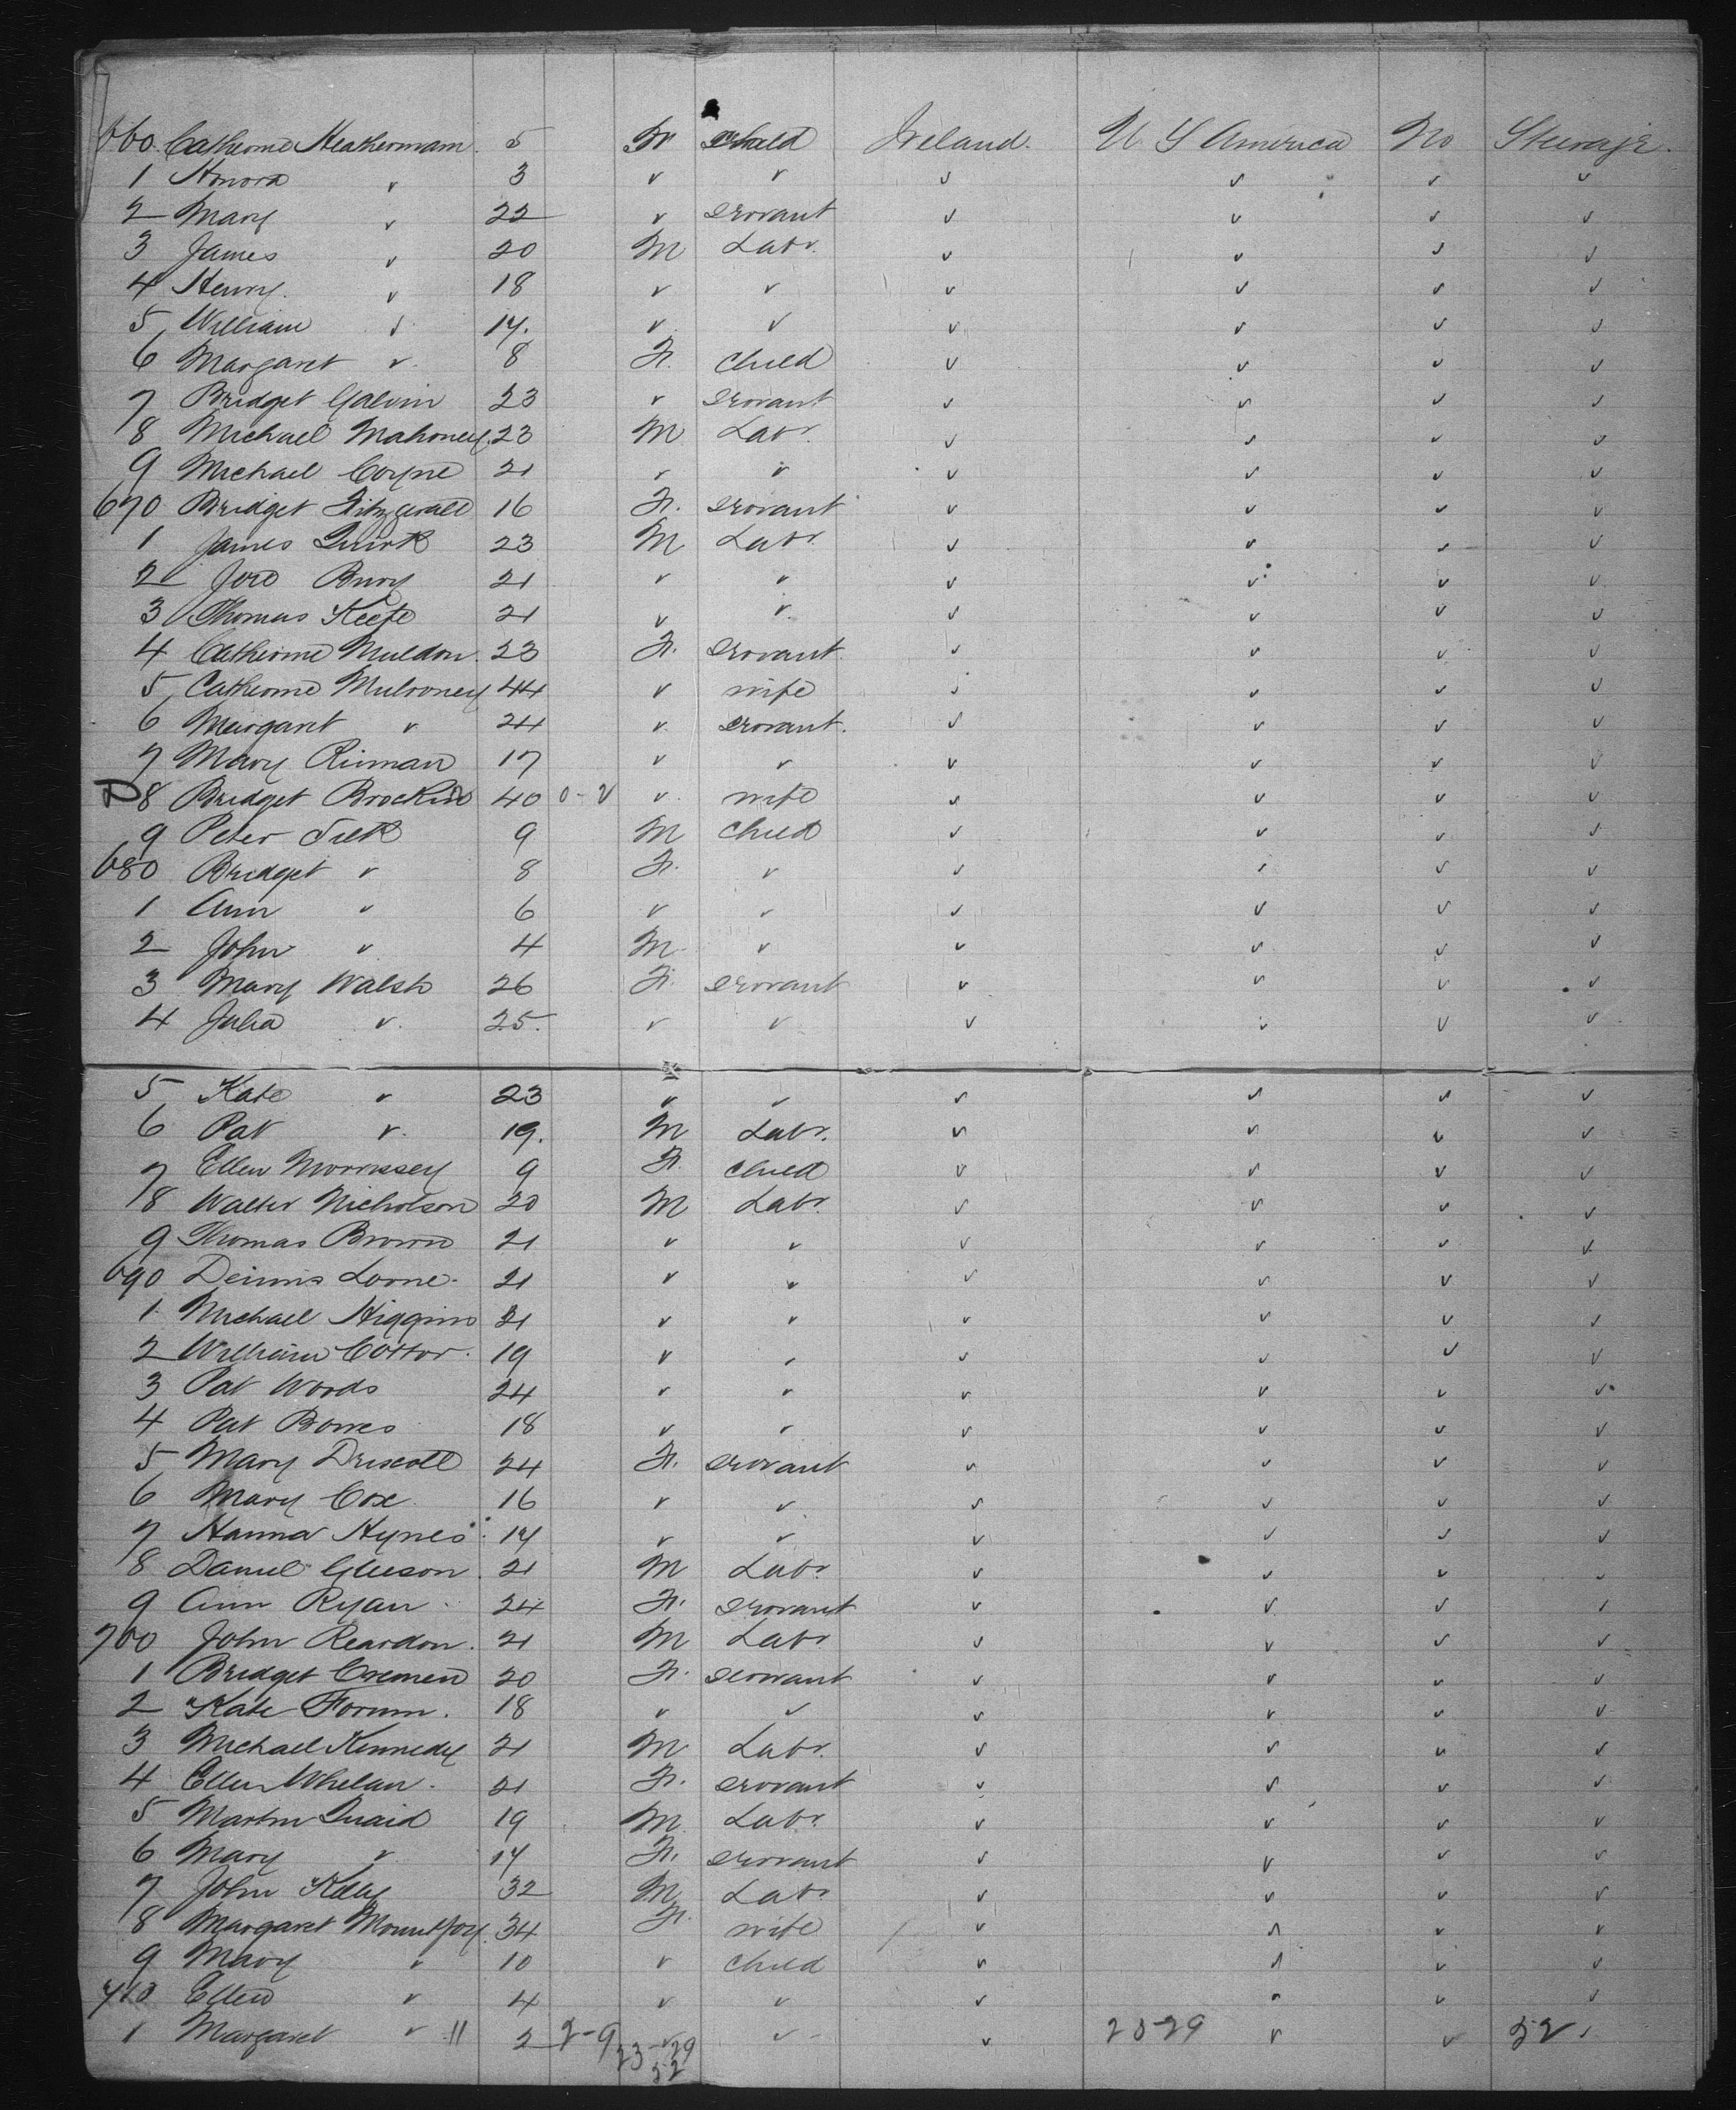 660. Catherine Heathermam. 5 F child Ireland. U S America No Steerage.
1 Honora v 3 v v v v v v
2 Mary v 22 v servant v v v v
3 James v 20 M Labr. v v v v
4 Henry. v 18 v v v v v v
5 William v 17. v v v v v v
6 Margaret v 8 F. child v v v v
7 Bridget Galvin 23 v servant v v v v
8 Michael Mahoney. 23 M Labr. v v v v
9 Michael Coyne 21 v v v v v v
670 Bridget Fitzgerald 16 F. servant v v v v
1 James Quirk 23 M Labr. v v v v
2 Jero Bury 21 v v v v v v
3 Thomas Keefe 21 v v v v v v
4 Catherine Muldon. 23 F. servant. v v v v
5 Catherine Mulroney 44 v wife v v v v
6 Margaret v 24 v. servant. v v v v
7 Mary Rinman 17 v v v v v v
8 Bridget Brockin 40 0-2 v. wife v v v v
9 Peter Silk 9 M child v v v v
680 Bridget v 8 F. v v v v v
1 Ann v 6 v v v v v v
2 John v 4 M v v v v v
3 Mary Walsh 26 F. servant v v v v
4 Julia v. 25. v v v v v v
5 Kate v 23 v v v v v v
6 Pat v. 19. M Labr. v v v v
7 Ellen Morrissey 9 F. child v v v v
8 Walter Nicholson 20 M Labr. v v v v
9 Thomas Brown 21 v v v v v v
690 Dennis Loone. 21 v v v v v v
1. Michael Higgins 21 v v v v v v
2 William Cottor. 19 v v v v v v
3 Pat Woods 24 v v v v v v
4 Pat Bowes 18 v v v v v v
5 Mary Driscoll 24 F. servant v v v v
6 Mary Cox. 16 v v v v v v
7 Hanna Hynes 14 v v v v v v
8 Daniel Gleeson. 21 M Labr. v v v v
9 Ann Ryan 24 F. servant v v v v
700 John Reardon. 21 M Labr v v v v
1 Bridget Cremen 20 F. servant v v v v
2 Kate Forum. 18 v v v v v v
3 Michael Kennedy 21 M Labr. v v v v
4 Ellen Whelan. 21 F. servant v v v v
5 Martin Quaid 19 M Labr. v v v v
6 Mary v 14 F. servant v v v v
7 John Kelly 32 M Labr v v v v
8 Margaret Mountjoy. 34 F. wife v v v v
9 Mary v 10 v child v v v v
710 Ellen v 4 v v v v v v
1 Margaret v 11 2 2-9 v v v 23-29 v v 52
23-29
52